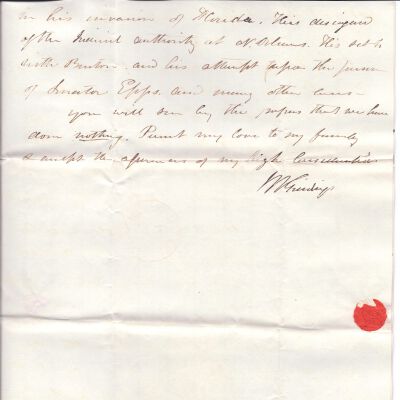 in his invasion of Florida. His disregard
of the Judicial authority at N. Orleans. His
with Benton and his attempt upon the person
of Senator Epps, and many other cases
you will see by the papers that we have
done nothing. Present my love to my family
& accept the assurances of my high Consideration